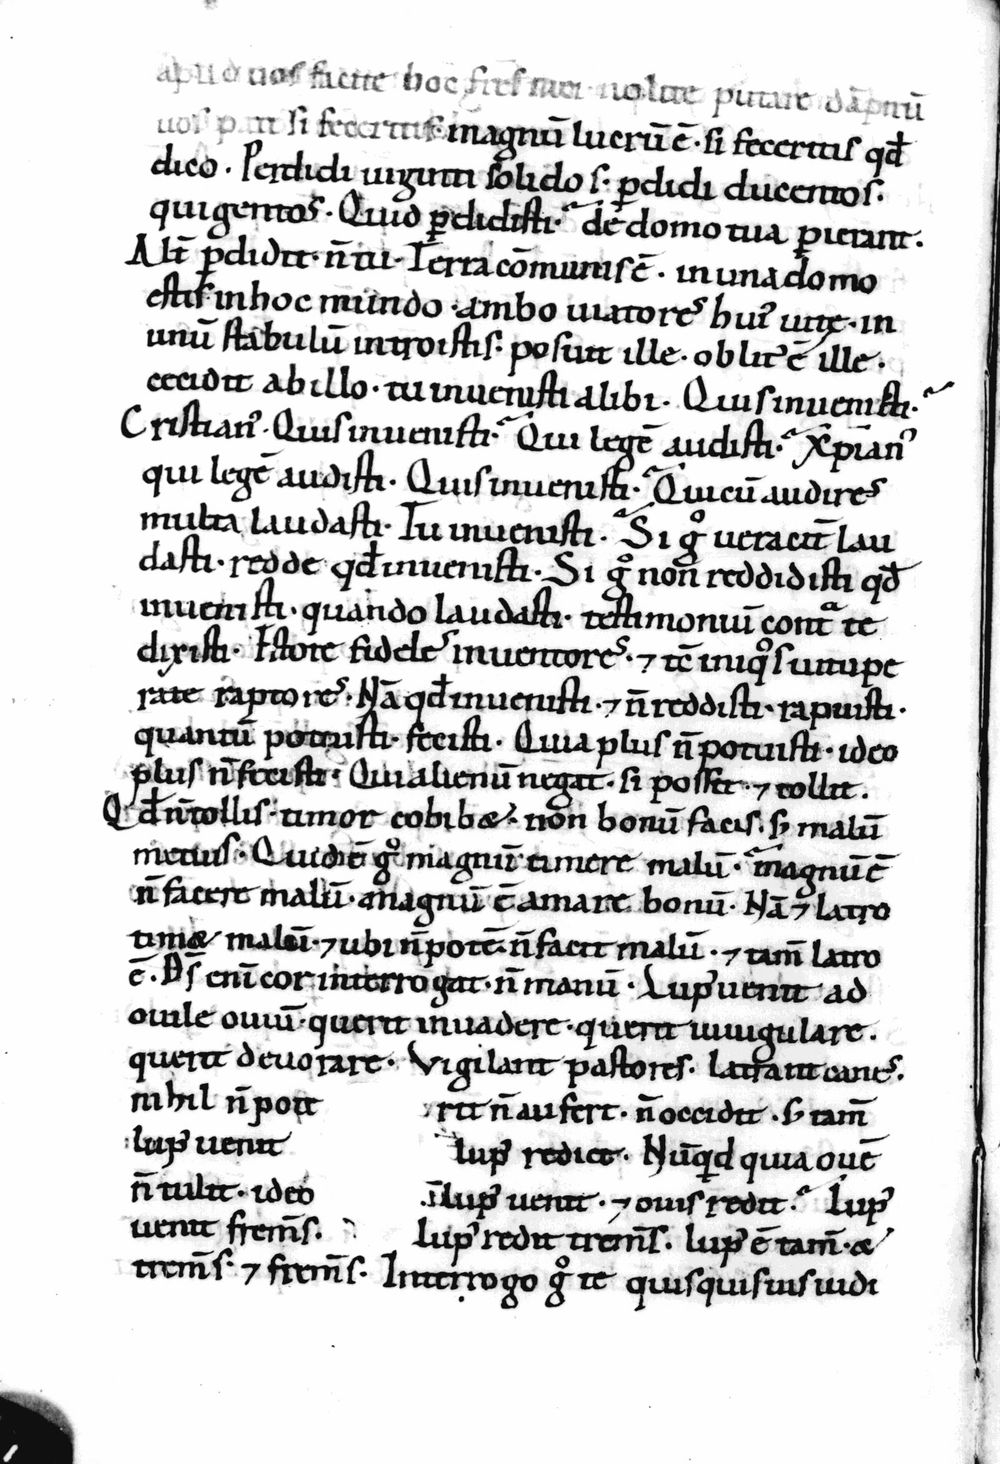 apud uos facite hoc fr̄es mei · nolite putare dāpnū
uos pati si feceritis · magnū lucrū ē · si feceritis qđ
dico · Perdidi uiginti solidos · ꝑdidi ducentos ·
quigentos · Quid ꝑdidisti · de domo tua ꝑierant ·
Alt̄ ꝑdidit · n̄ tu · Terra cōmunis ē · in una domo
estis in hoc mundo · ambo uiatores huiꝰ uitę · in
unū stabulū introistis · posuit ille · oblitꝰ ē ille ·
cecidit ab illo · tu inuenisti alibi · Quis inuenisti ·
Cristianꝰ · Quis inuenisti · Qui legē audisti · Xp̄ianꝰ
qui legē audisti · Quis inuenisti · Qui cū audires
multa laudasti · Tu inuenisti · Si gͦ ueracit̄ lau
dasti · redde qđ inuenisti · Si gͦ non reddidisti qđ
inuenisti · quando laudasti · testimoniū contᵃ te
dixisti · Estote fideles inuentores · ⁊ tc̄ iniqͦs uitupe
rate raptores · Nā qđ inuenisti · ⁊ n̄ reddisti · rapuisti ·
quantū potuisti · fecisti · Quia plus n̄ potuisti · ideo
plus n̄ fecisti · Qui alienū negat · si posset · ⁊ tollit ·
Qđ n̄ tollis · timor cohibet · non bonū facis · sꝫ malū
metuis · Quid ē gͦ magnū timere malū · magnū ē
n̄ facere malū · magnū ē amare bonū · Nā ⁊ latro
timet malū · ⁊ ubi n̄ potē · n̄ facit malū · ⁊ tam̄ latro
ē · Ds̄ eni cor interrogat · n̄ manū · Lupꝰ uenit ad
ouile ouiū · querit inuadere · querit iuugulare ·
querit deuorare · Vigilant pastores · latrant canes ·
nihil n̄ potit n̄ aufert · n̄ occidit · sꝫ tam̄
lupꝰ uenit lupꝰ redict · Nūqđ quia ouē
n̄ tulit · ideo lupꝰ uenit · ⁊ ouis redit · Lupꝰ
uenit frem̄s · Lupꝰ redit trem̄s · lupꝰ ē tam̄ · et
trem̄s · ⁊ frem̄s · Interrogo gͦ te quisquis uis iudi